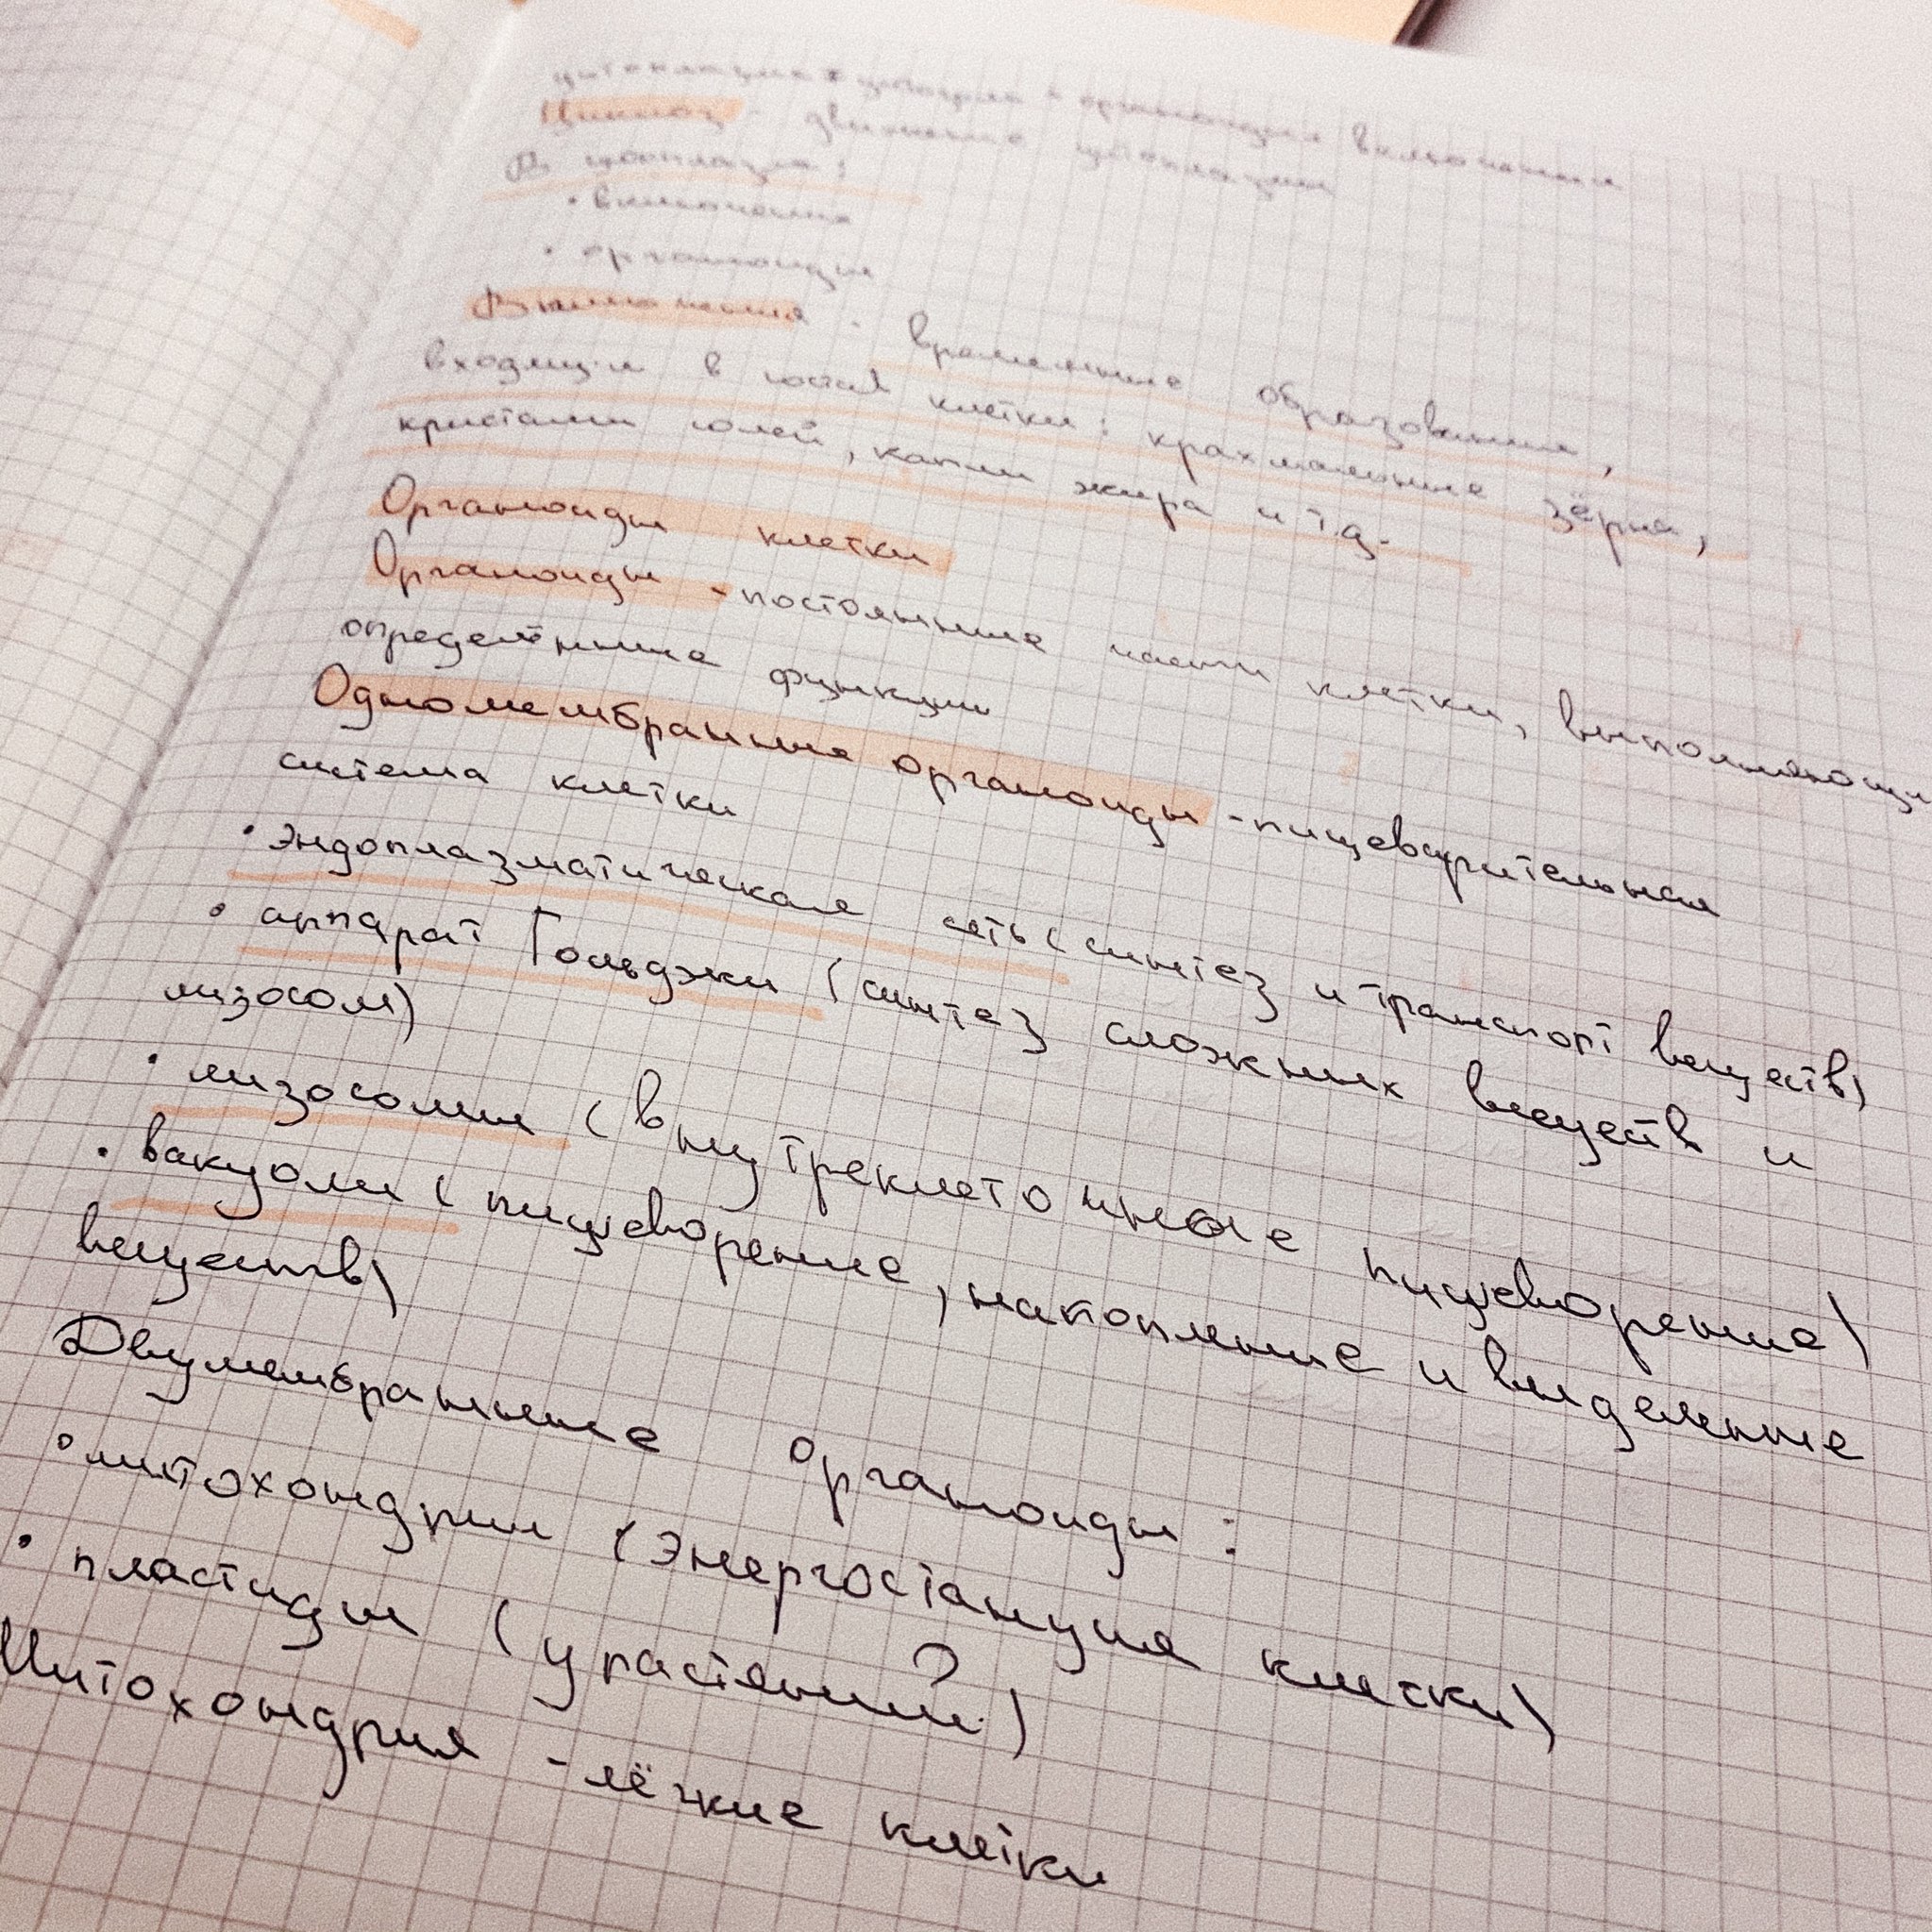 цитоплазма = + органоиды включения
Циклоз - движение цитоплазмы
В цитоплазме:
• включения
• органоиды
Включения - временные образования,
входящие в состав клетки: крахмальные зёрна,
кристаллы солей, капли жира и т.д.
Органоиды клетки
Органоиды - постоянные части клетки, выполняющие
определённые функции
Одномембранные органоиды - пищеварительная
система клетки
• эндоплазматическая сеть (синтез и транспорт веществ)
• аппарат Гольджи (синтез сложных веществ и
лизосом)
• лизосомы (внутриклеточное пищеворение)
• вакуоли (пищеворение, накопление и выделение
веществ)
Двумембранные органоиды:
• митохондрии (энергостанция клетки)
• пластиды (у растений)
Митохондрия - лёгкие клетки